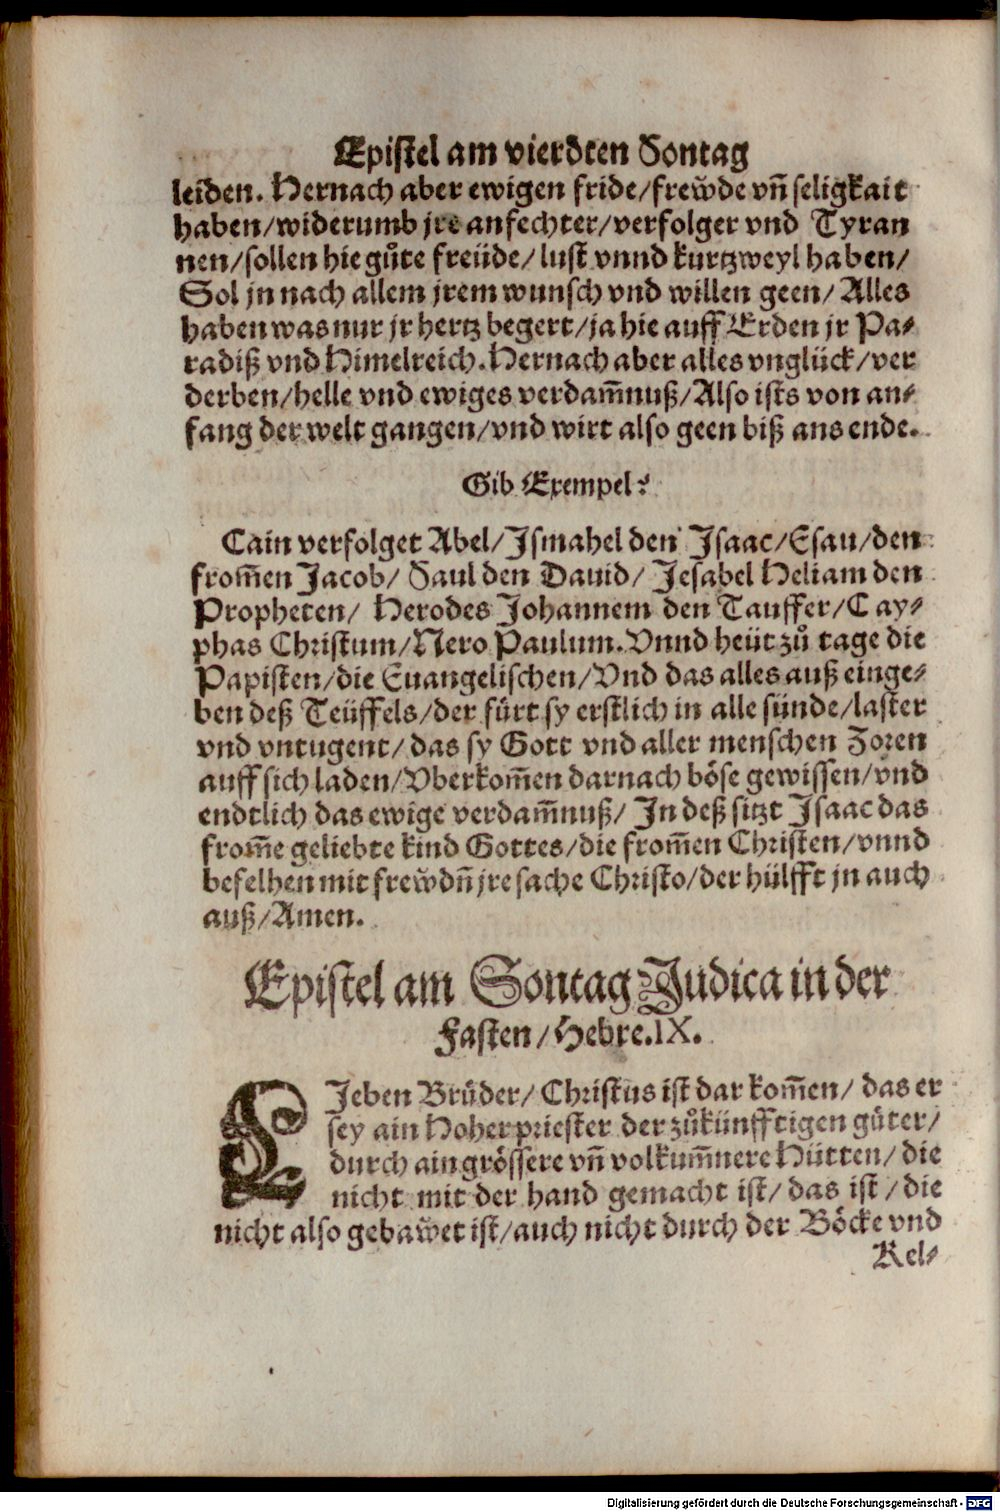 Epistel am vierdten Sontag
leiden. Hernach aber ewigen fride/frewͤde vñ seligkait
haben/widerumb jre anfechter/verfolger vnd Tyran
nen/sollen hie guͦte freüde/lust vnnd kurtzweyl haben/
Sol jn nach allem jrem wunsch vnd willen geen/ Alles
haben was nur jr hertz begert/ja hie auff Erden jr Pa⸗
radiß vnd Himelreich. Hernach aber alles vnglück/ver
derben/helle vnd ewiges verdam̄nuß/Also ists von an⸗
fang der welt gangen/vnd wirt also geen biß ans ende.
Gib Exempel?
Cain verfolget Abel/Ismahel den Isaac/Esau/den
from̄en Jacob/ Saul den Dauid/ Jesabel Heliam den
Propheten/ Herodes Johannem den Tauffer/Cay⸗
phas Christum/Nero Paulum. Vnnd heüt zuͦ tage die
Papisten/die Euangelischen/Vnd das alles auß einge⸗
ben deß Teüffels/der fürt sy erstlich in alle sünde/laster
vnd vntugent/ das sy Gott vnd aller menschen Zoren
auff sich laden/Vberkom̄en darnach böse gewissen/vnd
endtlich das ewige verdam̄nuß/ In deß sitzt Isaac das
from̄e geliebte kind Gottes/die from̄en Christen/vnnd
befelhen mit frewͤdñ jre sache Christo/der hülfft jn auch
auß/Amen.
Epistel am Sontag Judica in der
Fasten/Hebre.IX.
LJeben Bruͤder/ Christus ist dar kom̄en/ das er
sey ain Hoherpriester der zuͦkünfftigen güter/
durch ain grössere vñ volkum̄nere Hütten/ die
nicht mit der hand gemacht ist/ das ist/die
nicht also gebawͤet ist/auch nicht durch der Böcke vnd
Kel⸗
Digitalisierung gefördert durch die Deutsche Forschungsgemeinschaft - DFG